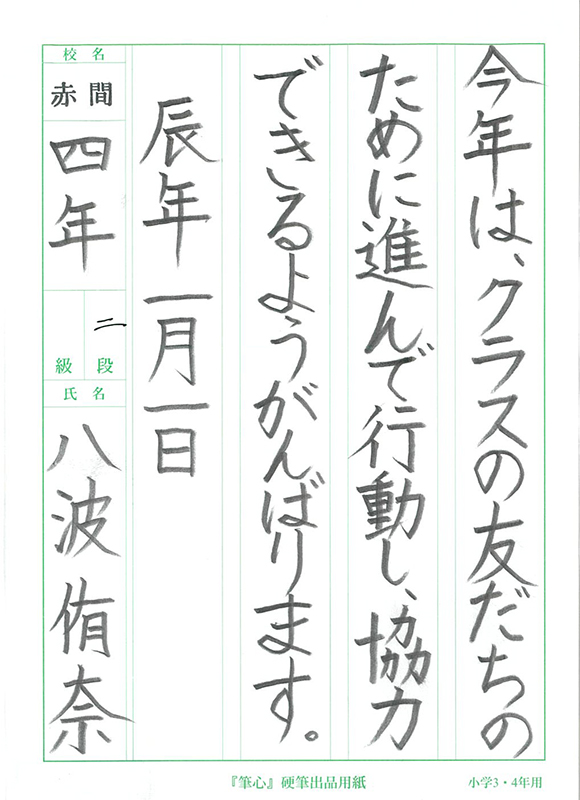 今年は、クラスの友だちの
ために進んで行動し、協力
できるようがんばります。
辰年 一月一日
校名
赤間
四年
二
級 段
氏名
八波 侑奈
『筆心』硬筆出品用紙
小学3・4年用